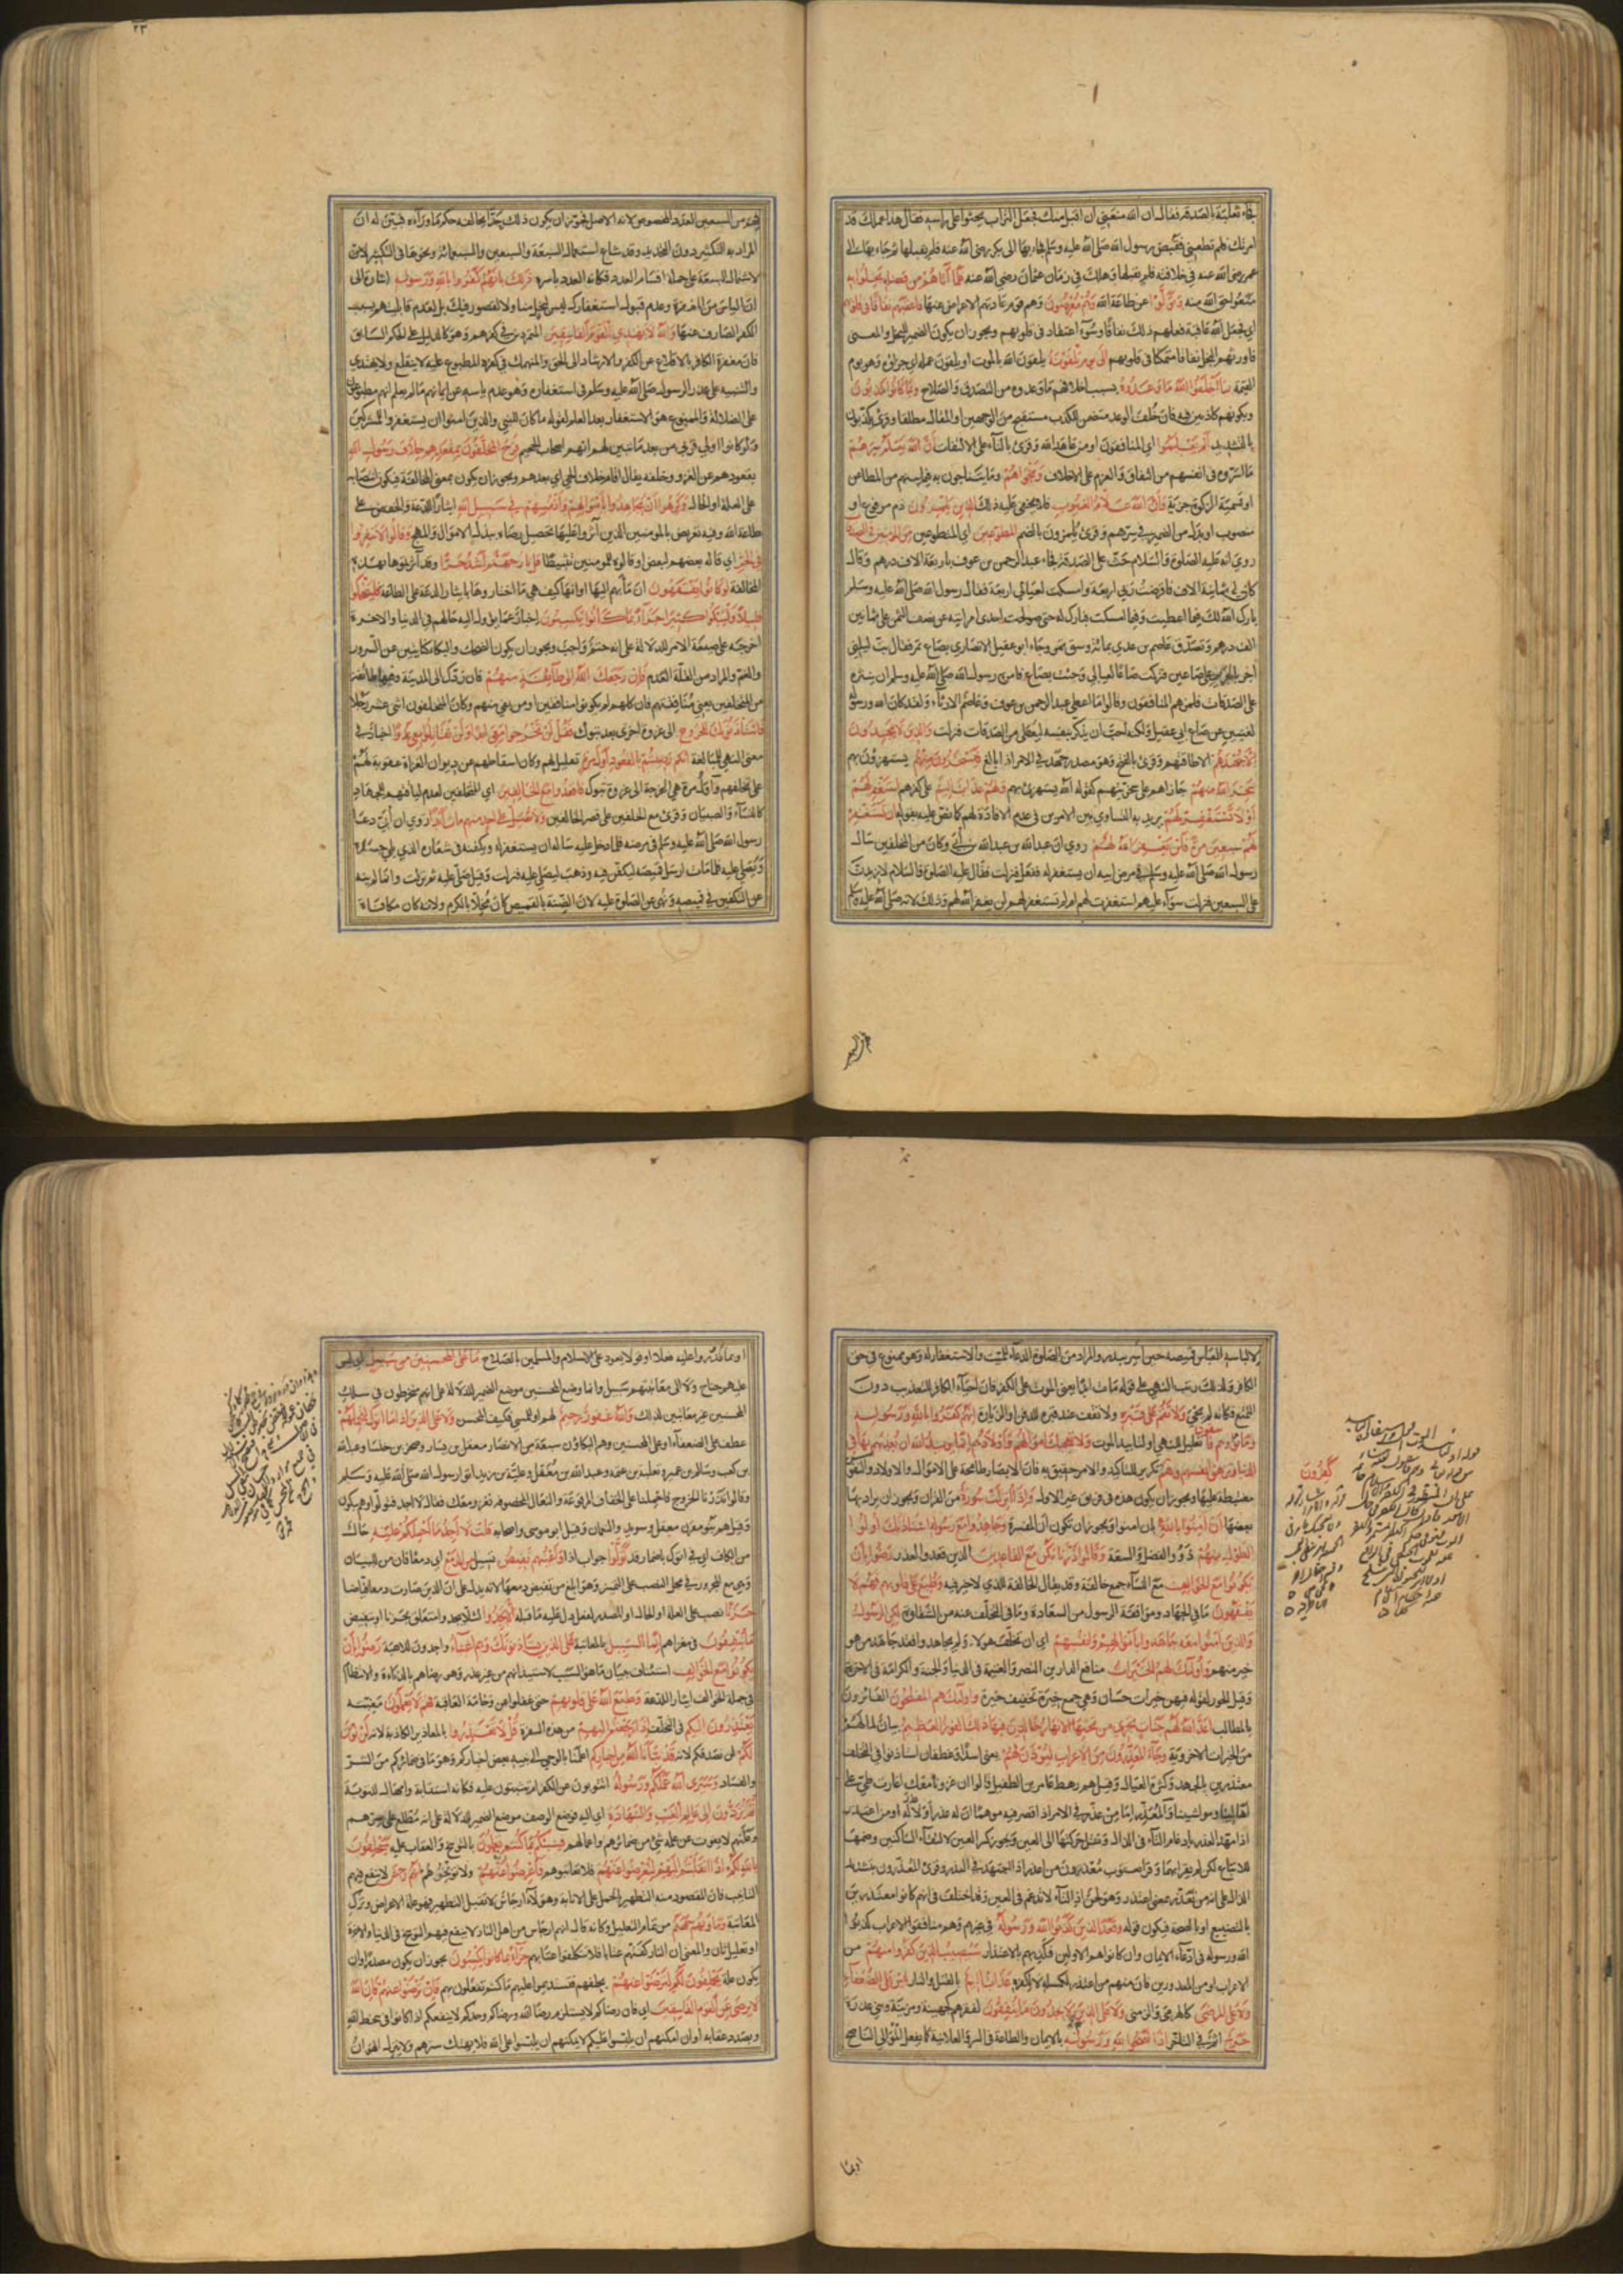 فجاء ثعلبة بالصدقة فقال ان الله منعني ان اقبل منك فجعل التراب يحثو على راسه فقال هذا عملك قد
امرتك فلم تطعني فقبض رسول الله صلى الله عليه وسلم فجاء بها الى ابي بكر رضي الله عنه فلم يقبلها ثم جاء بها الى
عمر رضي الله عنه في خلافته فلم يقبلها وهلك في زمان عثمان رضي الله عنه فلما آتاهم من فضله بخلوا به
منعوا حق الله منه وتولوا عن طاعة الله وهم معرضون وهم قوم عادتهم الاعراض عنها فاعقبهم نفاقا في قلوبهم
اي فجعل الله عاقبة فعلهم ذلك نفاقا وسوء اعتقاد في قلوبهم ويجوز ان يكون الضمير للبخل والمعنى
فاورثهم البخل نفاقا متمكنا في قلوبهم الى يوم يلقونه يلقون الله بالموت او يلقون عمله اي جزاؤه وهو يوم
القيمة بما اخلفوا الله ما وعدوه بسبب اخلافهم ما وعدوه من التصدق والصلاح وبما كانوا يكذبون
وبكونهم كاذبين فيه فان خلف الوعد متضمن للكذب مستقبح من الوجهين او المقال مطلقا وقرئ يكذبون
بالتشديد الم يعلموا اي المنافقون او من عاهد الله وقرئ بالتاء على الالتفات ان الله يعلم سرهم
ما اسروه في انفسهم من النفاق والعزم على الاخلاف ونجواهم وما يتناجون به فيما بينهم من المطاعن
او تسمية الزكوة جزية وان الله علام الغيوب فلا يخفى عليه ذلك الذين يلمزون ذم مرفوع او
منصوب او بدل من الضمير في سرهم وقرئ يلمزون بالضم المطوعين اي المتطوعين من المؤمنين في الصدقات
روي انه عليه الصلوة والسلام حث على الصدقة فجاء عبد الرحمن بن عوف باربعة الاف درهم وقال
كان لي ثمانية الاف فاقرضت ربي اربعة وامسكت لعيالي اربعة فقال رسول الله صلى الله عليه وسلم
بارك الله لك فيما اعطيت وفيما امسكت فبارك له حتى صولحت احدى امراتيه عن نصف الثمن على ثمانين
الف درهم وتصدق عاصم بن عدي بمائة وسق تمر وجاء ابو عقيل الانصاري بصاع تمر فقال بت ليلتي
اجر بالجرير على صاعين فتركت صاعا لعيالي وجئت بصاع فامره رسول الله صلى الله عليه وسلم ان ينثره
على الصدقات فلمزهم المنافقون وقالوا ما اعطى عبد الرحمن بن عوف وعاصم الا رياء ولقد كان الله ورسوله
لغنيين عن صاع ابي عقيل ولكنه احب ان يذكر بنفسه ليعطى من الصدقات فنزلت والذين لا يجدون
الا جهدهم الا طاقتهم وقرئ بالفتح وهو مصدر جهد في الامر اذا بالغ فيسخرون منهم يستهزؤن بهم
سخر الله منهم جازاهم على سخريتهم كقوله الله يستهزئ بهم ولهم عذاب اليم على كفرهم استغفر لهم
او لا تستغفر لهم يريد به التساوي بين الامرين في عدم الافادة لهم كما نص عليه بقوله ان تستغفر
لهم سبعين مرة فلن يغفر الله لهم روي ان عبد الله بن عبد الله بن أبي وكان من المخلصين سال
رسول الله صلى الله عليه وسلم في مرض ابيه ان يستغفر له ففعل فنزلت فقال عليه الصلوة والسلام لازيدن
على السبعين فنزلت سواء عليهم استغفرت لهم ام لم تستغفر لهم لن يغفر الله لهم وذلك لانه صلى الله عليه وسلم
فهم من السبعين
٢٣
فهم من السبعين العدد المخصوص لانه الاصل فجوز ان يكون ذلك حدا يخالفه حكم ما وراءه فبين له ان
المراد به التكثير دون التحديد وقد شاع استعمال السبعة والسبعين والسبعمائة ونحوها في التكثير لان
لاشتمال السبعة على جملة اقسام العدد فكانه العدد باسره ذلك بانهم كفروا بالله ورسوله اشارة الى
ان الياس من المغفرة وعدم قبول استغفارك ليس لبخل منا ولا لقصور فيك بل لعدم قابليتهم بسبب
الكفر الصارف عنها والله لا يهدي القوم الفاسقين المتمردين في كفرهم وهو كالدليل على الحكم السابق
فان مغفرة الكافر بالاقلاع عن الكفر والارشاد الى الحق والمنهمك في كفره المطبوع عليه لا ينقلع ولا يهتدي
والتنبيه على عذر الرسول صلى الله عليه وسلم في استغفاره وهو عدم ياسه عن ايمانهم ما لم يعلم انهم مطبوعون
على الضلالة والممنوع هو الاستغفار بعد العلم لقوله ما كان للنبي والذين امنوا ان يستغفروا للمشركين
ولو كانوا اولي قربى من بعد ما تبين لهم انهم اصحاب الجحيم فرح المخلفون بمقعدهم خلاف رسول الله
بقعودهم عن الغزو وخلفه يقال اقام خلاف الحي اي بعدهم ويجوز ان يكون بمعنى المخالفة فيكون انتصابه
على العلة او الحال وكرهوا ان يجاهدوا باموالهم وانفسهم في سبيل الله ايثارا للدعة والخفض على
طاعة الله وفيه تعريض بالمومنين الذين آثروا عليها تحصيل رضاه ببذل الاموال والمهج وقالوا لا تنفروا
في الحر اي قاله بعضهم لبعض او قالوه للمومنين تثبيطا قل نار جهنم اشد حرا وقد آثرتموها بهذه
المخالفة لو كانوا يفقهون ان مآبهم اليها او انها كيف هي ما اختاروها بايثار الدعة على الطاعة فليضحكوا
قليلا وليبكوا كثيرا جزاء بما كانوا يكسبون اخبار عما يؤل اليه حالهم في الدنيا والاخرة
اخرجه على صيغة الامر للدلالة على انه حتم واجب ويجوز ان يكون الضحك والبكاء كنايتين عن السرور
والغم والمراد من القلة العدم فان رجعك الله الى طائفة منهم فان ردك الى المدينة وفيها طائفة
من المتخلفين يعني منافقيهم فان كلهم لم يكونوا منافقين او من بقي منهم وكان المتخلفون اثنى عشر رجلا
فاستاذنوك للخروج الى غزوة اخرى بعد تبوك فقل لن تخرجوا معي ابدا ولن تقاتلوا معي عدوا اخبار في
معنى النهي للمبالغة انكم رضيتم بالقعود اول مرة تعليل لهم وكان اسقاطهم عن ديوان الغزاة عقوبة لهم
على تخلفهم واول مرة هي الخرجة الى غزوة تبوك فاقعدوا مع الخالفين اي المتخلفين لعدم لياقتهم للجهاد
كالنساء والصبيان وقرئ مع الخلفين على قصر الخالفين ولا تصل على احد منهم مات ابدا روي ان أبي دعا
رسول الله صلى الله عليه وسلم في مرضه فلما دخل عليه ساله ان يستغفر له ويكفنه في شعاره الذي يلي جسده
ويصلي عليه فلما مات ارسل قميصه ليكفن فيه وذهب ليصلي عليه فنزلت وقيل صلى عليه ثم نزلت وانما لم ينه
عن التكفين في قميصه ونهى عن الصلوة عليه لان الضنة بالقميص كان مخلا بالكرم ولانه كان مكافاة
لالباسه العباس قميصه حين اسر ببدر والمراد من الصلوة الدعاء للميت والاستغفار له وهو ممنوع في حق
الكافر ولذلك رتب النهي على قوله مات ابدا يعني الموت على الكفر فان احياء الكافر للتعذيب دون
التمتع فكانه لم يحي ولا تقم على قبره ولا تقف عند قبره للدفن او الزيارة انهم كفروا بالله ورسوله
وماتوا وهم فاسقون تعليل للنهي او لتابيد الموت ولا تعجبك اموالهم واولادهم انما يريد الله ان يعذبهم بها في
الدنيا وتزهق انفسهم وهم تكرير للتاكيد والامر حقيق به فان الابصار طامحة الى الاموال والاولاد والنفوس
مغتبطة عليها ويجوز ان يكون هذه في فريق غير الاول واذا انزلت سورة من القران ويجوز ان يراد بها
بعضها ان امنوا بالله بان امنوا ويجوز ان تكون ان المفسرة وجاهدوا مع رسوله استاذنك اولوا
الطول منهم ذوو الفضل والسعة وقالوا ذرنا نكن مع القاعدين الذين قعدوا لعذر رضوا بان
يكونوا مع الخوالف مع النساء جمع خالفة وقد يقال الخالفة للذي لا خير فيه وطبع على قلوبهم فهم لا
يفقهون ما في الجهاد وموافقة الرسول من السعادة وما في التخلف عنه من الشقاوة لكن الرسول
والذين امنوا معه جاهدوا باموالهم وانفسهم اي ان تخلف هولاء ولم يجاهدوا فقد جاهد من هو
خير منهم واولئك لهم الخيرات منافع الدارين النصر والغنيمة في الدنيا والجنة والكرامة في الاخرة
وقيل الحور لقوله فيهن خيرات حسان وهي جمع خيرة تخفيف خيرة واولئك هم المفلحون الفائزون
بالمطالب اعد الله لهم جنات تجري من تحتها الانهار خالدين فيها ذلك الفوز العظيم بيان لما لهم
من الخيرات الاخروية وجاء المعذرون من الاعراب ليؤذن لهم يعني اسدا وغطفان استاذنوا في التخلف
معتذرين بالجهد وكثرة العيال وقيل هم رهط عامر بن الطفيل قالوا ان غزونا معك اغارت طي على
اهالينا ومواشينا والمعذر اما من عذر في الامر اذا قصر فيه موهما ان له عذرا ولا عذر له او من اعتذر
اذا مهد العذر بادغام التاء في الذال ونقل حركتها الى العين ويجوز كسر العين لالتقاء الساكنين وضمها
للاتباع لكن لم يقرا بهما وقرا يعقوب معذرون من اعذر اذا اجتهد في العذر وقرئ المعذرون بتشديد
الذال على انه من تعذر بمعنى اعتذر وهو لحن اذ التاء لا تدغم في العين وقد اختلف في انهم كانوا معتذرين
بالتصنيع او بالصحة فيكون قوله وقعد الذين كذبوا الله ورسوله في غيرهم وهم منافقوا الاعراب كذبوا
الله ورسوله في ادعاء الايمان وان كانوا هم الاولين فكذبهم بالاعتذار سيصيب الذين كفروا منهم من
الاعراب او من المعذرين فان منهم من اعتذر لكسله لا لكفره عذاب اليم بالقتل والنار ليس على الضعفاء
ولا على المرضى كالهرمى والزمنى ولا على الذين لا يجدون ما ينفقون لفقرهم كجهينة ومزينة وبني عذرة
حرج اثم في التاخر اذا نصحوا لله ورسوله بالايمان والطاعة في السر والعلانية كما يفعل الموالي الناصح
كفرون
او بما
او بما قدروا عليه فعلا او قولا يعود على الاسلام والمسلمين بالصلاح ما على المحسنين من سبيل اي ليس
عليهم جناح ولا الى معاتبتهم سبيل وانما وضع المحسنين موضع الضمير للدلالة على انهم منخرطون في سلك
المحسنين غير معاتبين لذلك والله غفور رحيم لهم او للمسيء فكيف للمحسن ولا على الذين اذا ما اتوك لتحملهم
عطف على الضعفاء او على المحسنين وهم البكاؤن سبعة من الانصار معقل بن يسار وصخر بن خنساء وعبد الله
بن كعب وسالم بن عمير وثعلبة بن عنمة وعبد الله بن مغفل وعلية بن زيد اتوا رسول الله صلى الله عليه وسلم
وقالوا نذرنا الخروج فاحملنا على الخفاف المرقوعة والنعال المخصوفة نغز معك فقال لا اجد فتولوا وهم يبكون
وقيل هم بنو مقرن معقل وسويد والنعمان وقيل ابو موسى واصحابه قلت لا اجد ما احملكم عليه حال
من الكاف في اتوك باضمار قد تولوا جواب اذا واعينهم تفيض تسيل من الدمع اي دمعا فان من للبيان
وهي مع المجرور في محل النصب على التمييز وهو ابلغ من تفيض دمعها لانه يدل على ان العين صارت دمعا فياضا
حزنا نصب على العلة او الحال او المصدر لفعل دل عليه ما قبله الا يجدوا لئلا يجدوا متعلق بحزنا او بتفيض
ما ينفقون في مغزاهم انما السبيل بالمعاتبة على الذين يستاذنونك وهم اغنياء واجدون للاهبة رضوا بان
يكونوا مع الخوالف استئناف لبيان ما هو السبب لاستيذانهم من غير عذر وهو رضاهم بالدناءة والانتظام
في جملة الخوالف ايثارا للدعة وطبع الله على قلوبهم حتى غفلوا عن وخامة العاقبة فهم لا يعلمون مغبته
يعتذرون اليكم في التخلف اذا رجعتم اليهم من هذه السفرة قل لا تعتذروا بالمعاذير الكاذبة لانه لن نؤمن
لكم لن نصدقكم لانه قد نبأنا الله من اخباركم اعلمنا بالوحي الى نبيه بعض اخباركم وهو ما في ضمائركم من الشر
والفساد وسيرى الله عملكم ورسوله اتتوبون عن الكفر ام تثبتون عليه فكانه استتابة وامهال للتوبة
ثم تردون الى عالم الغيب والشهادة اي اليه فوضع الوصف موضع الضمير للدلالة على انه مطلع على سرهم
وعلنهم لا يفوت عن علمه شئ من ضمائرهم واعمالهم فينبئكم بما كنتم تعملون بالتوبيخ والعقاب عليه سيحلفون
بالله لكم اذا انقلبتم اليهم لتعرضوا عنهم فلا تعاتبوهم فاعرضوا عنهم ولا توبخوهم انهم رجس لا ينفع فيهم
التانيب فان المقصود منه التطهير بالحمل على الانابة وهولاء ارجاس لا تقبل التطهير فهو علة الاعراض وترك
المعاتبة وماويهم جهنم من تمام التعليل وكانه قال انهم ارجاس من اهل النار لا ينفع فيهم التوبيخ في الدنيا والاخرة
او تعليل ثان والمعنى ان النار كفتهم عتابا فلا تتكلفوا عتابهم جزاء بما كانوا يكسبون يجوز ان يكون مصدرا وان
يكون علة يحلفون لكم لترضوا عنهم بحلفهم فتستديموا عليهم ما كنتم تفعلون بهم فان ترضوا عنهم فان الله
لا يرضى عن القوم الفاسقين اي فان رضاكم لا يستلزم رضا الله ورضاكم وحدكم لا ينفعكم اذا كانوا في سخط الله
وبصدد عقابه او ان امكنهم ان يلبسوا عليكم لا يمكنهم ان يلبسوا على الله فلا يهتك سترهم ولا ينزل الهوان